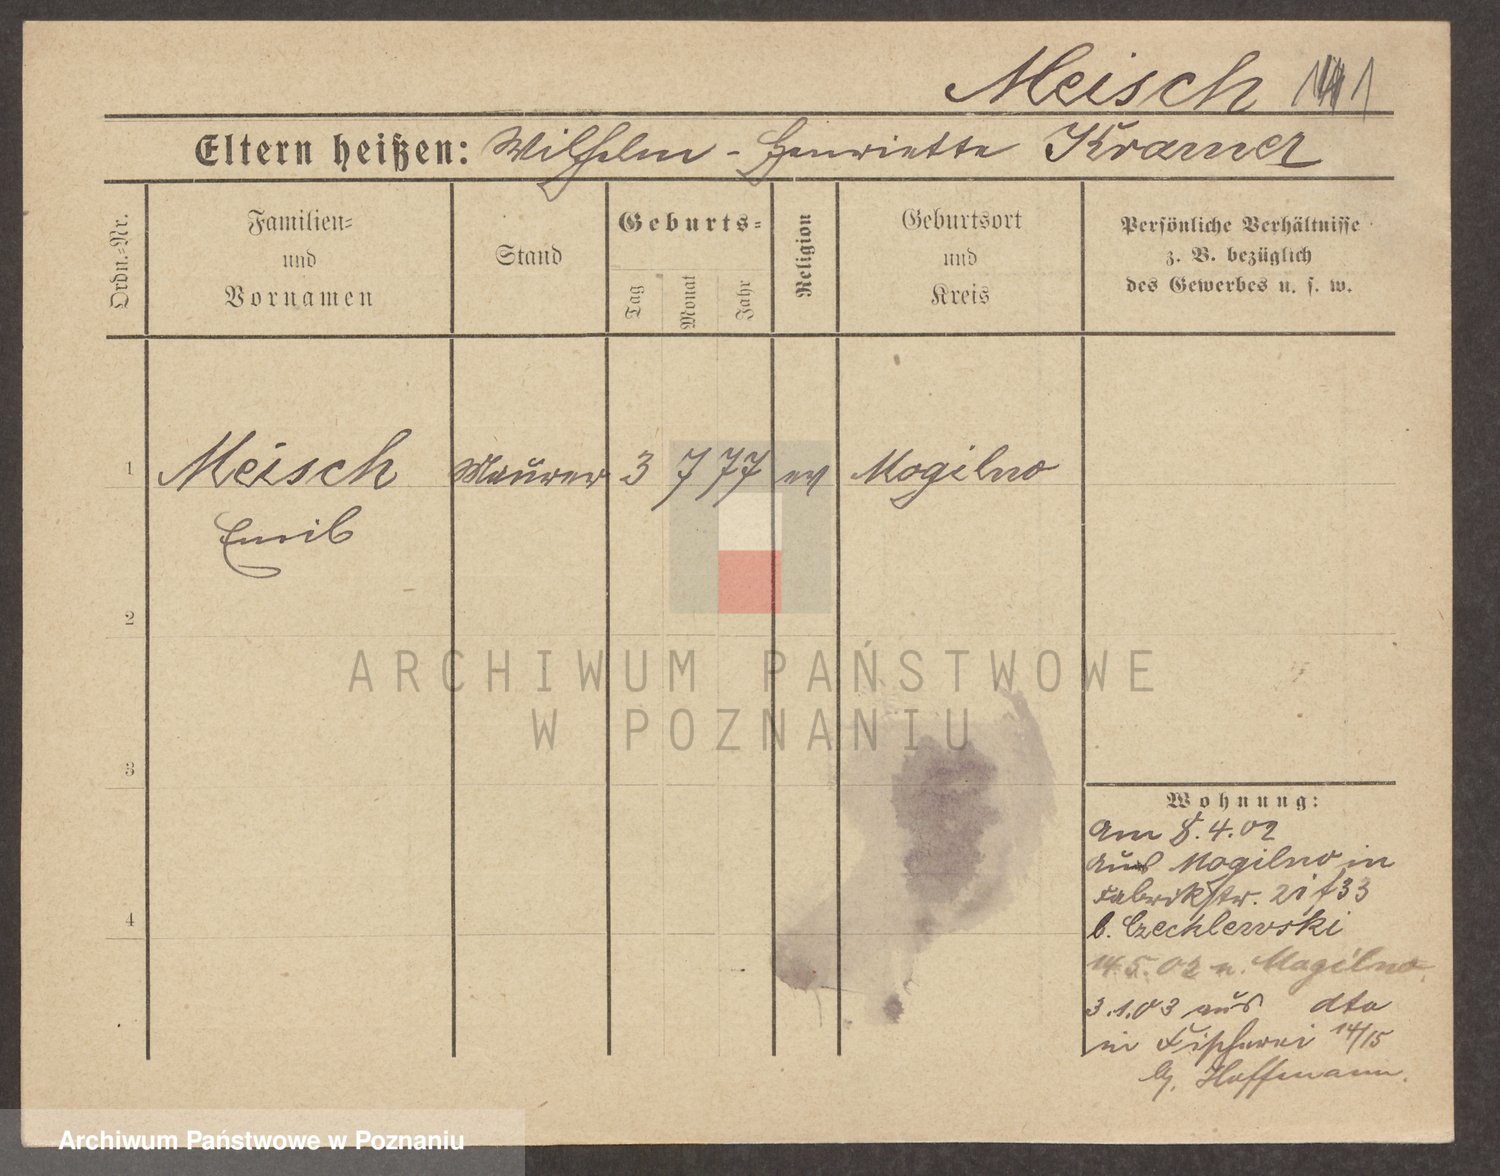 Meisch
Eltern heißen: Wilhelm - Henriette Kramer
Ordn.-Nr.
Familien-
und
Vornamen
Stand
Geburts-
Tag
Monat
Jahr
Religion
Geburtsort
und
Kreis
Persönliche Verhältnisse
z. B. bezüglich
des Gewerbes u. s. w.
1 Meisch Maurer 3 7 77 ev Mogilno
Emil
2
3
4
Wohnung:
Am 8.4.02
aus Mogilno in
Fabrikstr. 33
b. Czechlewski
14.5.02 n. Mogilno
3.1.03 aus dto
in Fischerei 14/15
b. Hoffmann.
ARCHIWUM PAŃSTWOWE
W POZNANIU
Archiwum Państwowe w Poznaniu